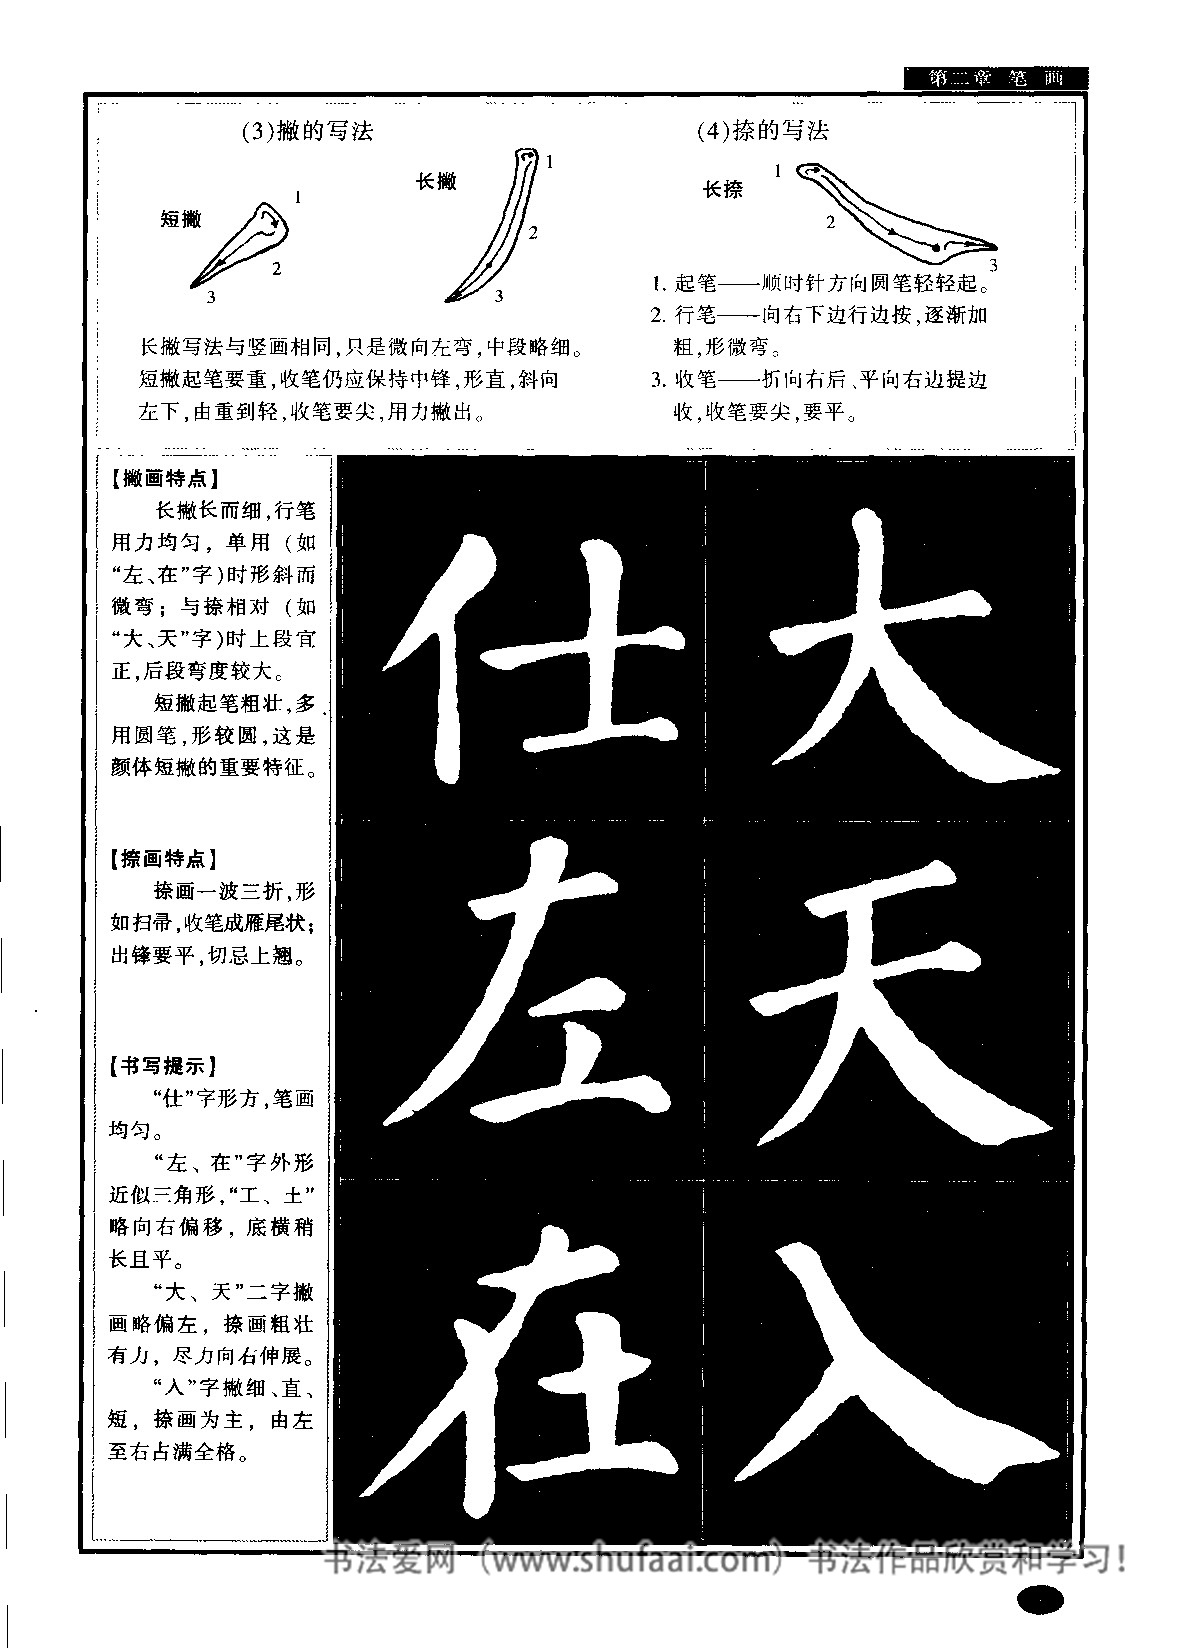 第二章 笔 画
(3)撇的写法
短撇
1
2
3
长撇
1
2
3
长撇写法与竖画相同,只是微向左弯,中段略细。
短撇起笔要重,收笔仍应保持中锋,形直,斜向
左下,由重到轻,收笔要尖,用力撇出。
(4)捺的写法
长捺
1
2
3
1. 起笔——顺时针方向圆笔轻轻起。
2. 行笔——向右下边行边按,逐渐加
粗,形微弯。
3. 收笔——折向右后、平向右边提边
收,收笔要尖,要平。
【撇画特点】
长撇长而细,行笔
用力均匀, 单用 (如
“左、在”字)时形斜而
微弯; 与捺相对 (如
“大、天”字)时上段宜
正,后段弯度较大。
短撇起笔粗壮,多
用圆笔,形较圆,这是
颜体短撇的重要特征。
【捺画特点】
捺画一波三折,形
如扫帚,收笔成雁尾状;
出锋要平,切忌上翘。
【书写提示】
“仕”字形方,笔画
均匀。
“左、在”字外形
近似三角形,“工、土”
略向右偏移, 底横稍
长且平。
“大、天”二字撇
画略偏左, 捺画粗壮
有力, 尽力向右伸展。
“入”字撇细、直、
短, 捺画为主, 由左
至右占满全格。
仕 大
左 天
在 入
书法爱网（www.shufaai.com）书法作品欣赏和学习！